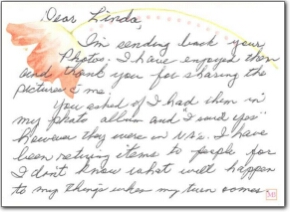 Dear Linda,
I'm sending back your
Photos. I have enjoyed them
and thank you for sharing the
pictures & me.
You asked if I had them in
my photo album and I said yes
however they were in N.S. I have
been retiring items to people for
I don't know what will happen
to my things when my turn comes.